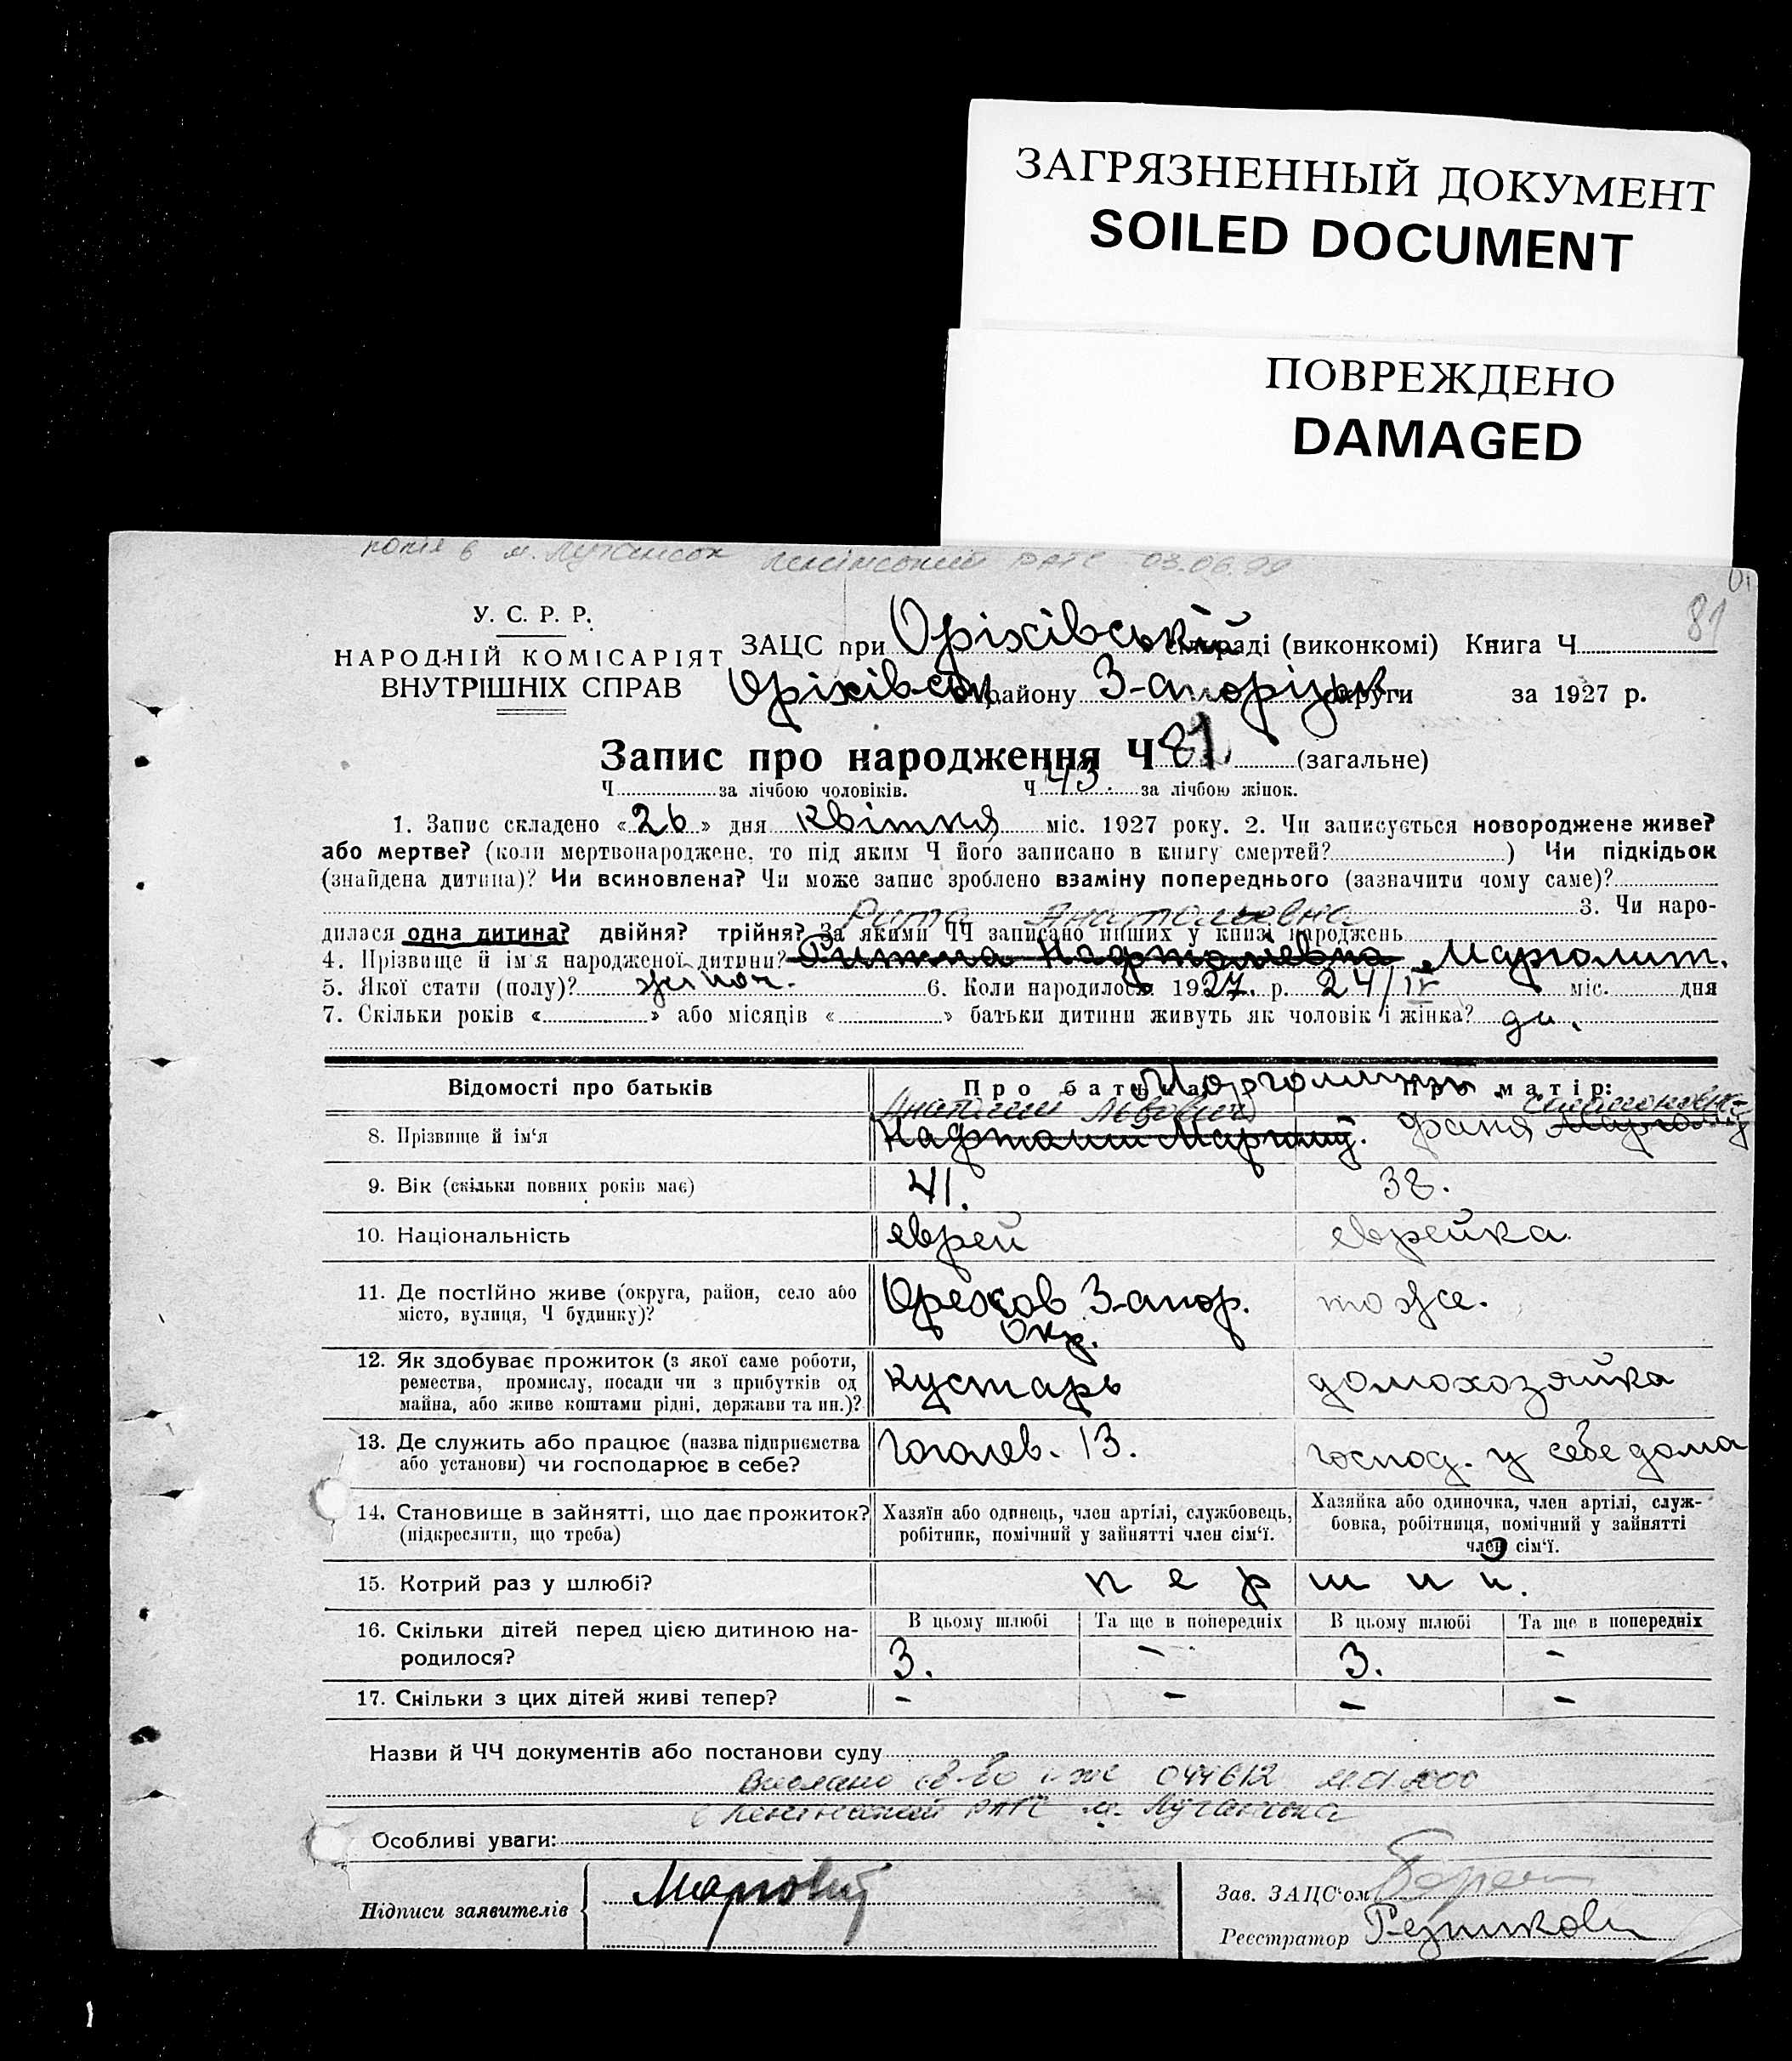 ЗАГРЯЗНЕННЫЙ ДОКУМЕНТ
SOILED DOCUMENT
ПОВРЕЖДЕНО
DAMAGED
копія в м. Луганськ Ленінський РАГС 03.06.99
81
У. С. Р. Р.
НАРОДНІЙ КОМІСАРІЯТ
ВНУТРІШНІХ СПРАВ
ЗАЦС при Оріхівській сільраді (виконкомі) Книга Ч
Оріхівськ. району З-апоріжск. округи за 1927 р.
Запис про народження Ч 81 (загальне)
Ч за лічбою чоловіків. Ч 43. за лічбою жінок.
1. Запис складено «26» дня квітня міс. 1927 року. 2. Чи записується новороджене живе?
або мертве? (коли мертвонароджене, то під яким Ч його записано в книгу смертей? ) Чи підкідьок
(знайдена дитина)? Чи всиновлена? Чи може запис зроблено взаміну попереднього (зазначити чому саме)?
3. Чи наро-
Рита Анатольевна
дилася одна дитина? двійня? трійня? За якими ЧЧ записано інших у книзі народжень
4. Прізвище й ім'я народженої дитини? Нафтоліевна Марголит.
5. Якої стати (полу)? жіноч. 6. Коли народилося 1927. р. 24/IV міс. дня
7. Скільки років « » або місяців « » батьки дитини живуть як чоловік і жінка?
Відомості про батьків Про батька: Про матір:
Анатолий Львович
8. Прізвище й ім'я Нафтолий Фаня
9. Вік (скільки повних років має) 41. 38.
10. Національність еврей еврейка.
11. Де постійно живе (округа, район, село або Орехов З-апор. тоже.
місто, вулиця, Ч будинку)? Окр.
12. Як здобуває прожиток (з якої саме роботи,
ремества, промислу, посади чи з прибутків од кустарь домохозяйка
майна, або живе коштами рідні, держави та ин.)?
13. Де служить або працює (назва підприємства Гоголев. 13. господ. у себе дома
або установи) чи господарює в себе?
14. Становище в зайнятті, що дає прожиток? Хазяїн або одинець, член артілі, службовець, Хазяйка або одиночка, член артілі, служ-
(підкреслити, що треба) робітник, помічний у зайнятті член сім'ї. бовка, робітниця, помічний у зайнятті
член сім'ї.
15. Котрий раз у шлюбі? перший.
16. Скільки дітей перед цією дитиною на- В цьому шлюбі Та ще в попередніх В цьому шлюбі Та ще в попередніх
родилося? 3. - 3. -
17. Скільки з цих дітей живі тепер? - - - -
Назви й ЧЧ документів або постанови суду
Вислано св-во 044612
Ленінський РАГС м. Луганська
Особливі уваги:
Підписи заявителів
Зав. ЗАЦС'ом
Реєстратор